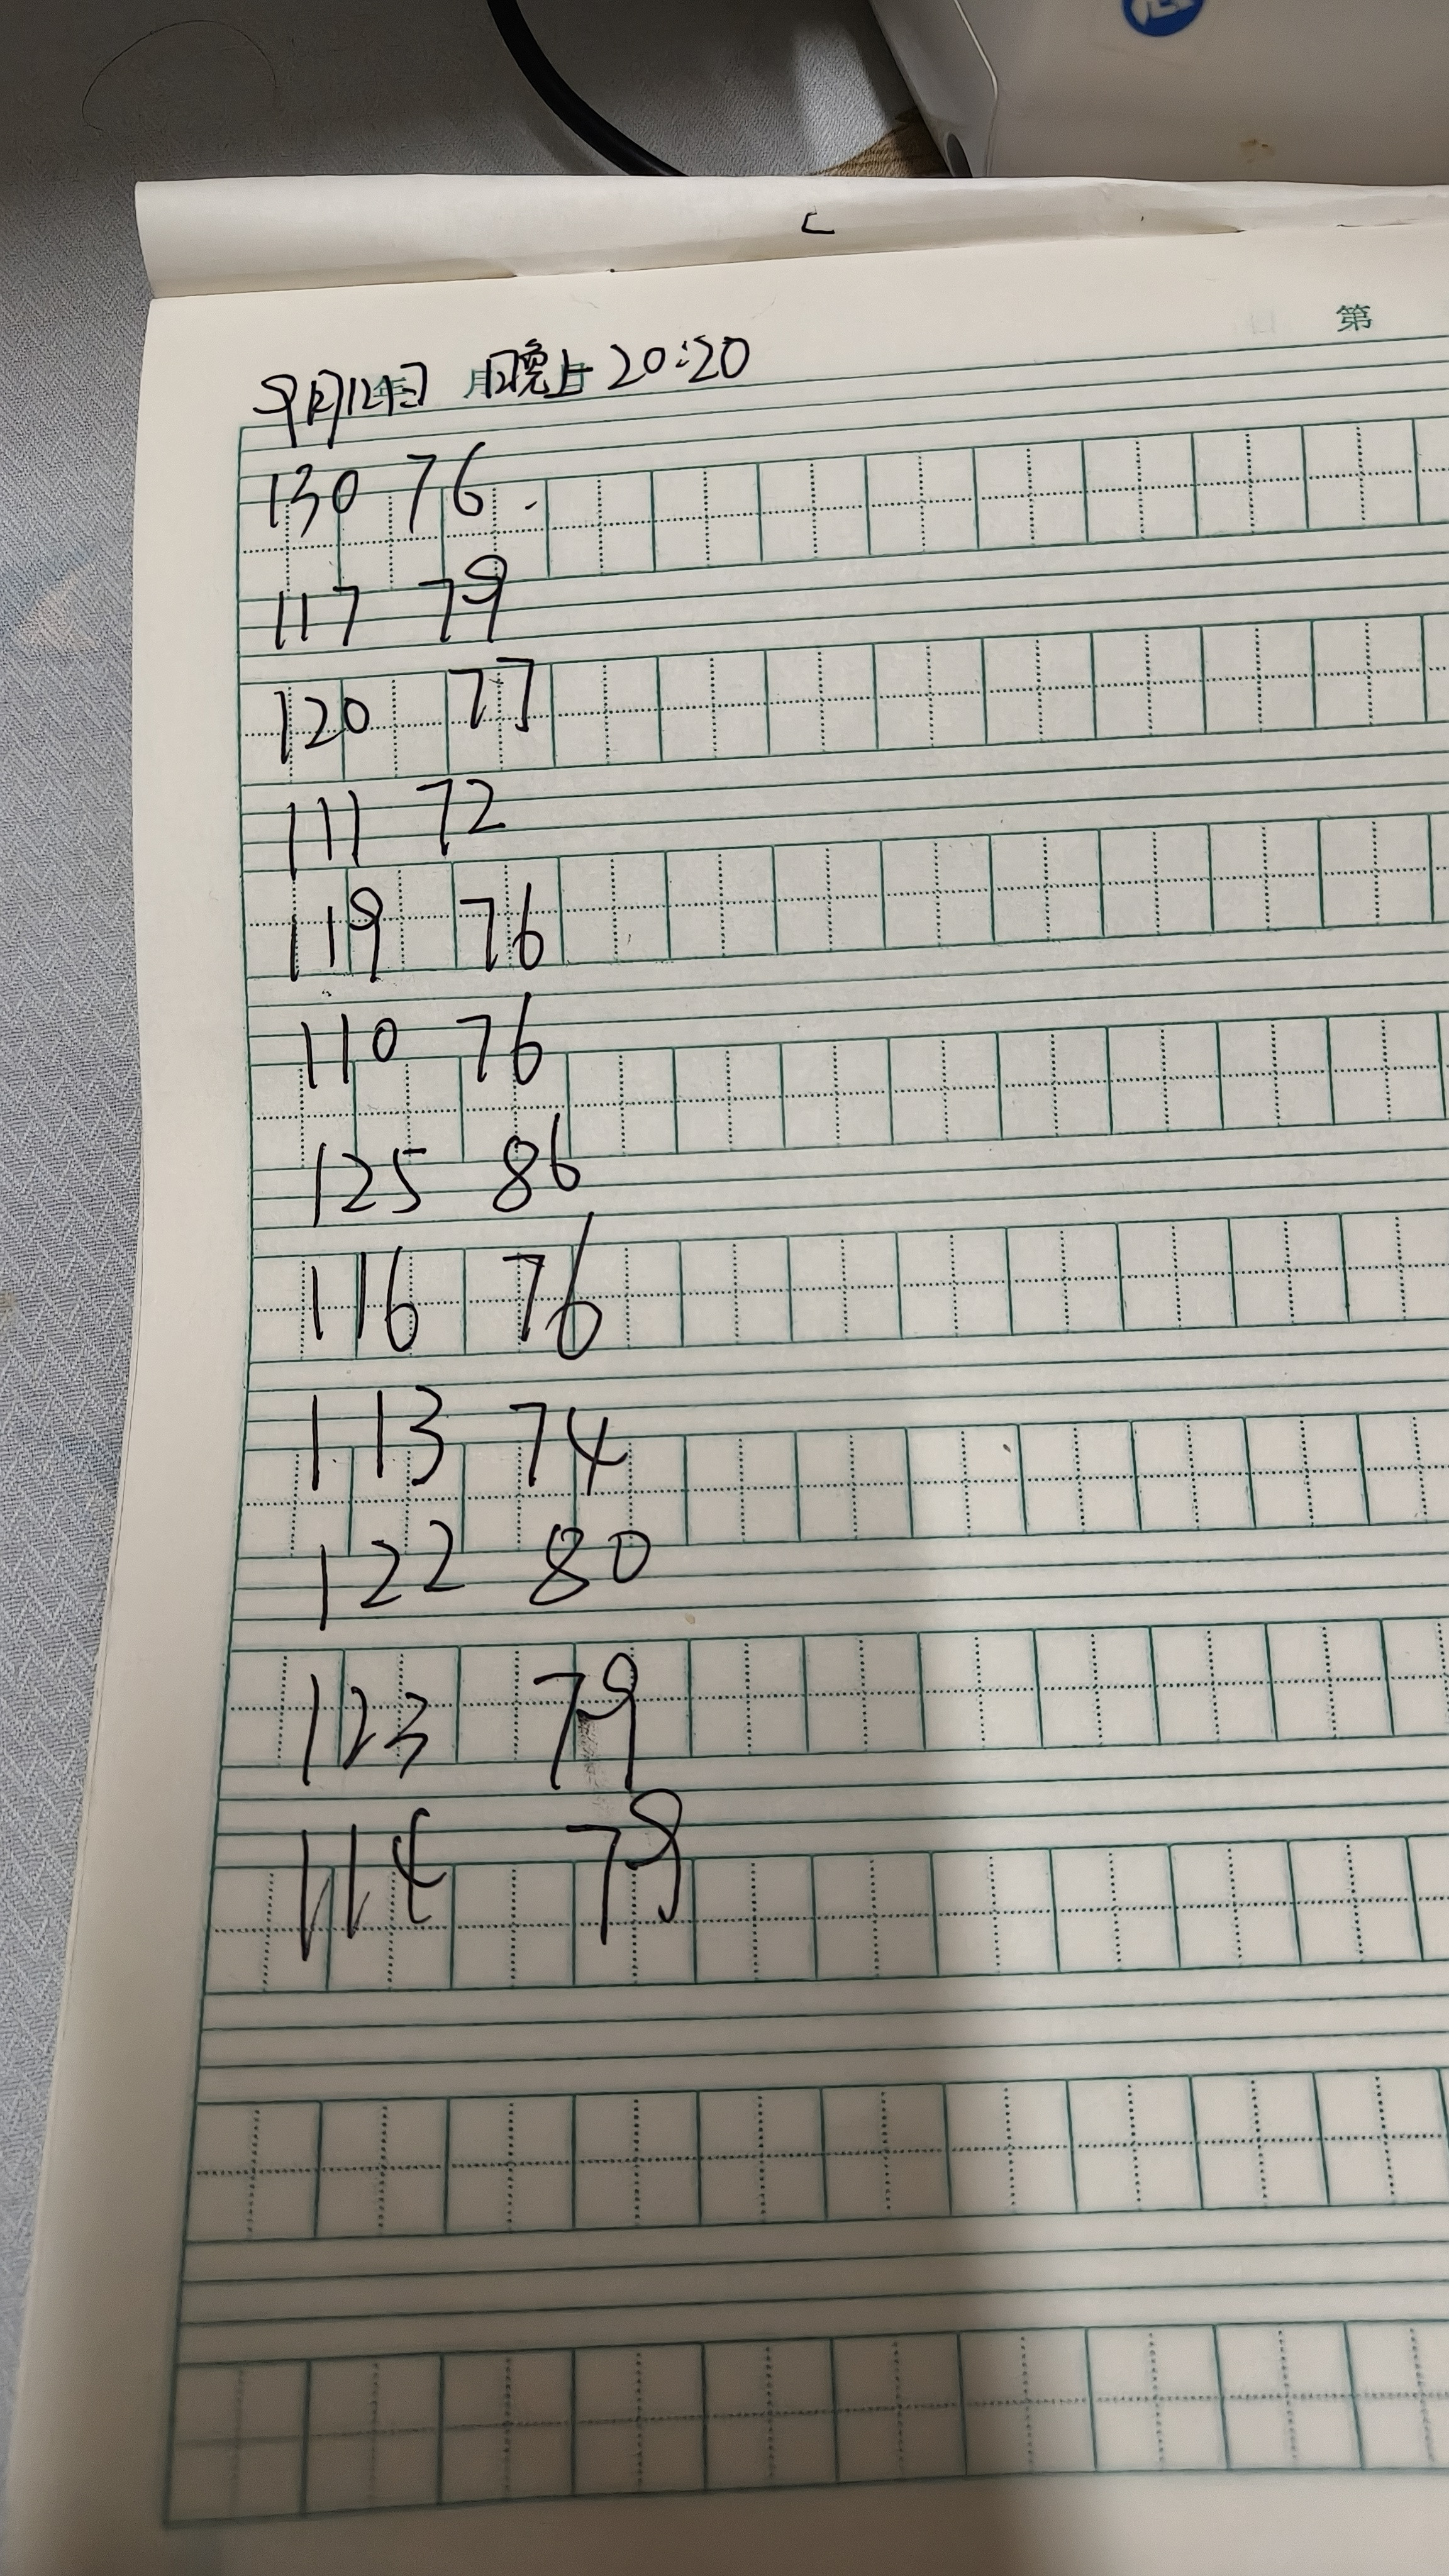 第
9月12日 晚上20:20
130 76
117 79
120 77
111 72
119 76
110 76
125 86
116 76
113 74
122 80
123 79
114 79